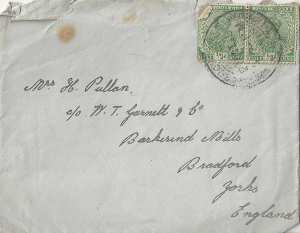 Mrs H. Pullan.
c/o W. T. Garnett & Co
Barkerend Mills
Bradford
Yorks
England